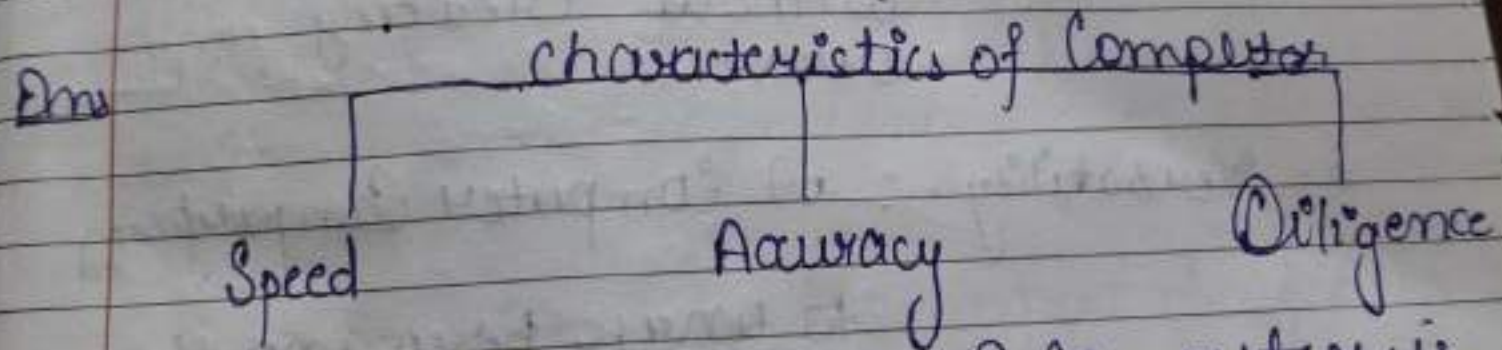 characteristics of Computer
Ans
Speed Accuracy Diligence